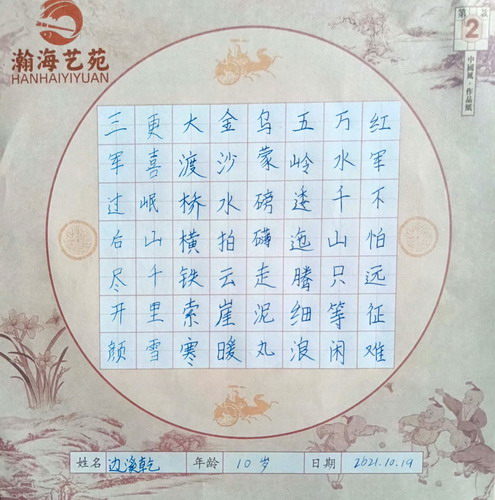 瀚海艺苑
HANHAIYIYUAN
第2款
中國風·作品紙
红军不怕远征难
万水千山只等闲
五岭逶迤腾细浪
乌蒙磅礴走泥丸
金沙水拍云崖暖
大渡桥横铁索寒
更喜岷山千里雪
三军过后尽开颜
姓名 边溪乾 年龄 10岁 日期 2021.10.19